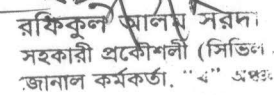 রফিকুল আলম সরদা
সহকারী প্রকৌশলী (সিভিল
জোনাল কর্মকর্তা,